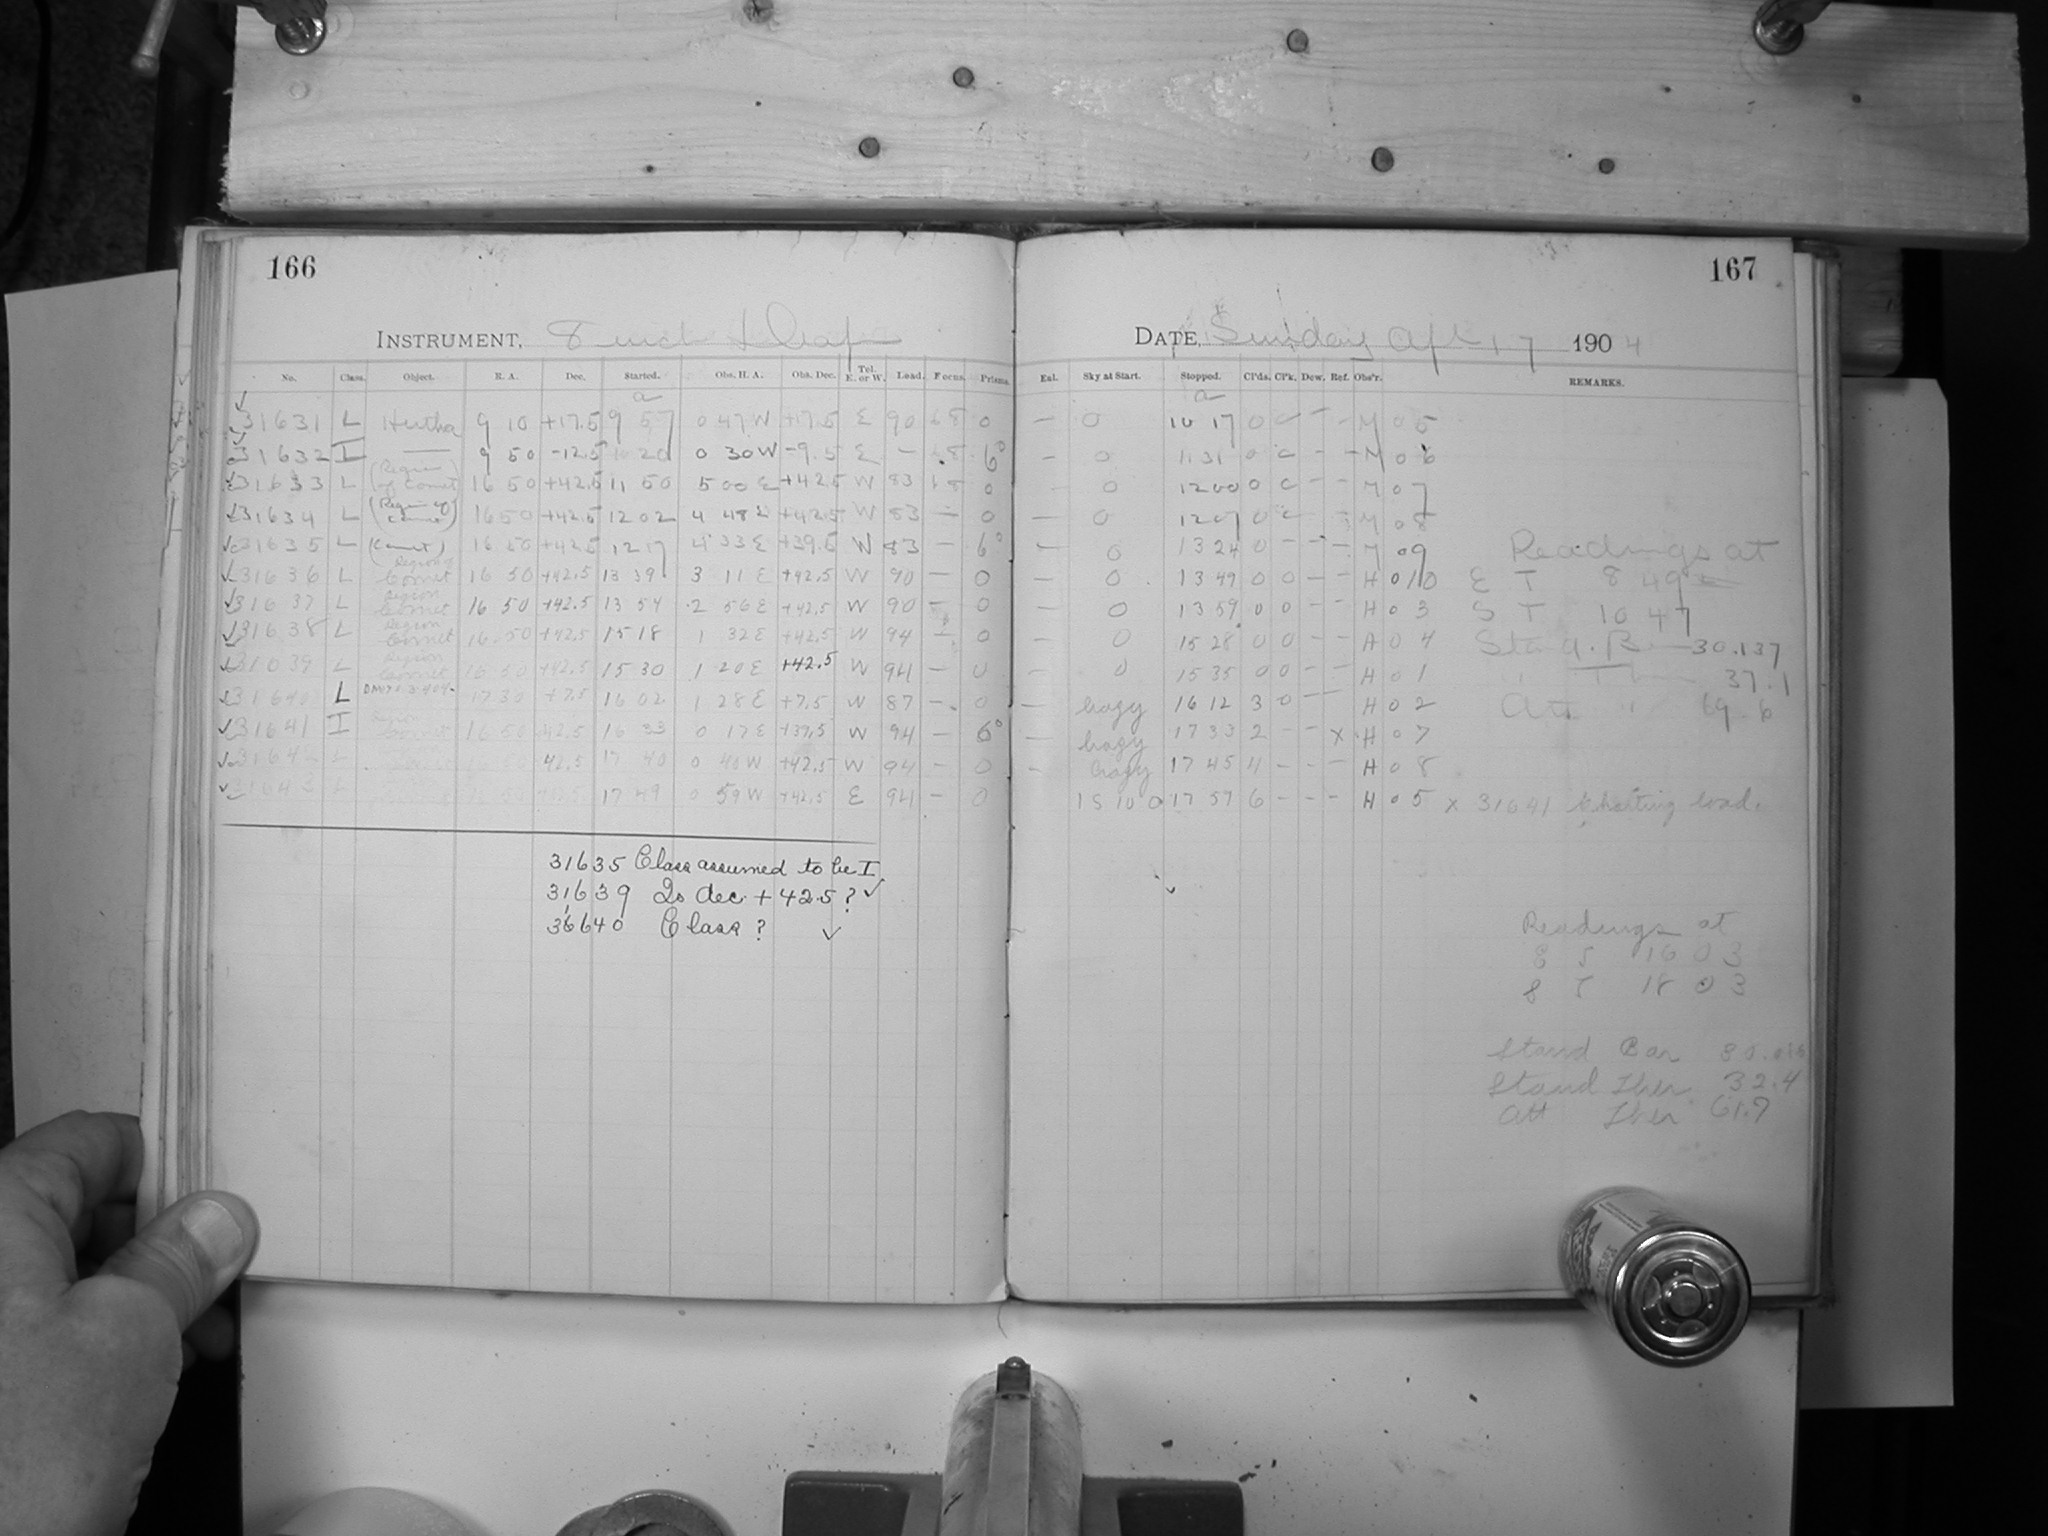 166
INSTRUMENT, 8 inch Draper
No. Class. Object. R. A. Dec. Started. Obs. H. A. Obs. Dec. Tel. E. or W. Load. Focus. Prisms.
a
31631 L Hertha 9 10 +17.5 9 57 0 47 W +17.5 E 90 0
31632 I — 9 50 -12.5 10 20 0 30 W -9.5 E — 6°
31633 L (Region of Comet) 16 50 +42.5 11 50 5 00 E +42.5 W 83 0
31634 L (Region of Comet) 16 50 +42.5 12 02 4 48 E +42.5 W 83 — 0
31635 L (Comet) 16 50 +42.5 12 17 4 33 E +39.5 W 83 — 6°
31636 L Region of Comet 16 50 +42.5 13 39 3 11 E +42.5 W 90 — 0
31637 L Region Comet 16 50 +42.5 13 54 2 56 E +42.5 W 90 — 0
31638 L Region Comet 16 50 +42.5 15 18 1 32 E +42.5 W 94 — 0
31639 L Region Comet 16 50 +42.5 15 30 1 20 E +42.5 W 94 — 0
31640 L 17 30 +7.5 16 02 1 28 E +7.5 W 87 - 0
31641 I Region Comet 16 50 42.5 16 33 0 17 E +39.5 W 94 — 6°
31642 L 16 50 42.5 17 40 0 40 W +42.5 W 94 — 0
31643 L 17 49 0 59 W +42.5 E 94 — 0
31635 Class assumed to be I.
31639 Is dec. + 42.5 ? ✓
31640 Class ? ✓
167
DATE, Sunday Apr 17 1904
Exl. Sky at Start. Stopped. Cl'ds. Cl'k. Dew. Ref. Obs'r. REMARKS.
a
— 0 10 17 0 c - - M 0 5
— 0 11 31 0 c - - M 0 6
— 0 12 00 0 c - - M 0 7
— 0 12 07 0 c - - M 0 8
— 0 13 24 0 - - - M 0 9
— 0 13 49 0 0 - - H 0 10
— 0 13 59 0 0 - - H 0 3
— 0 15 28 0 0 - - H 0 4
— 0 15 35 0 0 - - H 0 1
— hazy 16 12 3 0 - - H 0 2
— hazy 17 33 2 - - x H 0 7
— hazy 17 45 4 - - - H 0 8
15 100 17 57 6 - - - H 0 5 x 31641 load.
Readings at
E T 8 49
S T 10 47
Stand. B. — 30.137
" Ther 37.1
Att. " 69.6
Readings at
16 03
18 03
Stand Bar
Stand Ther. 32.4
Att Ther 61.7